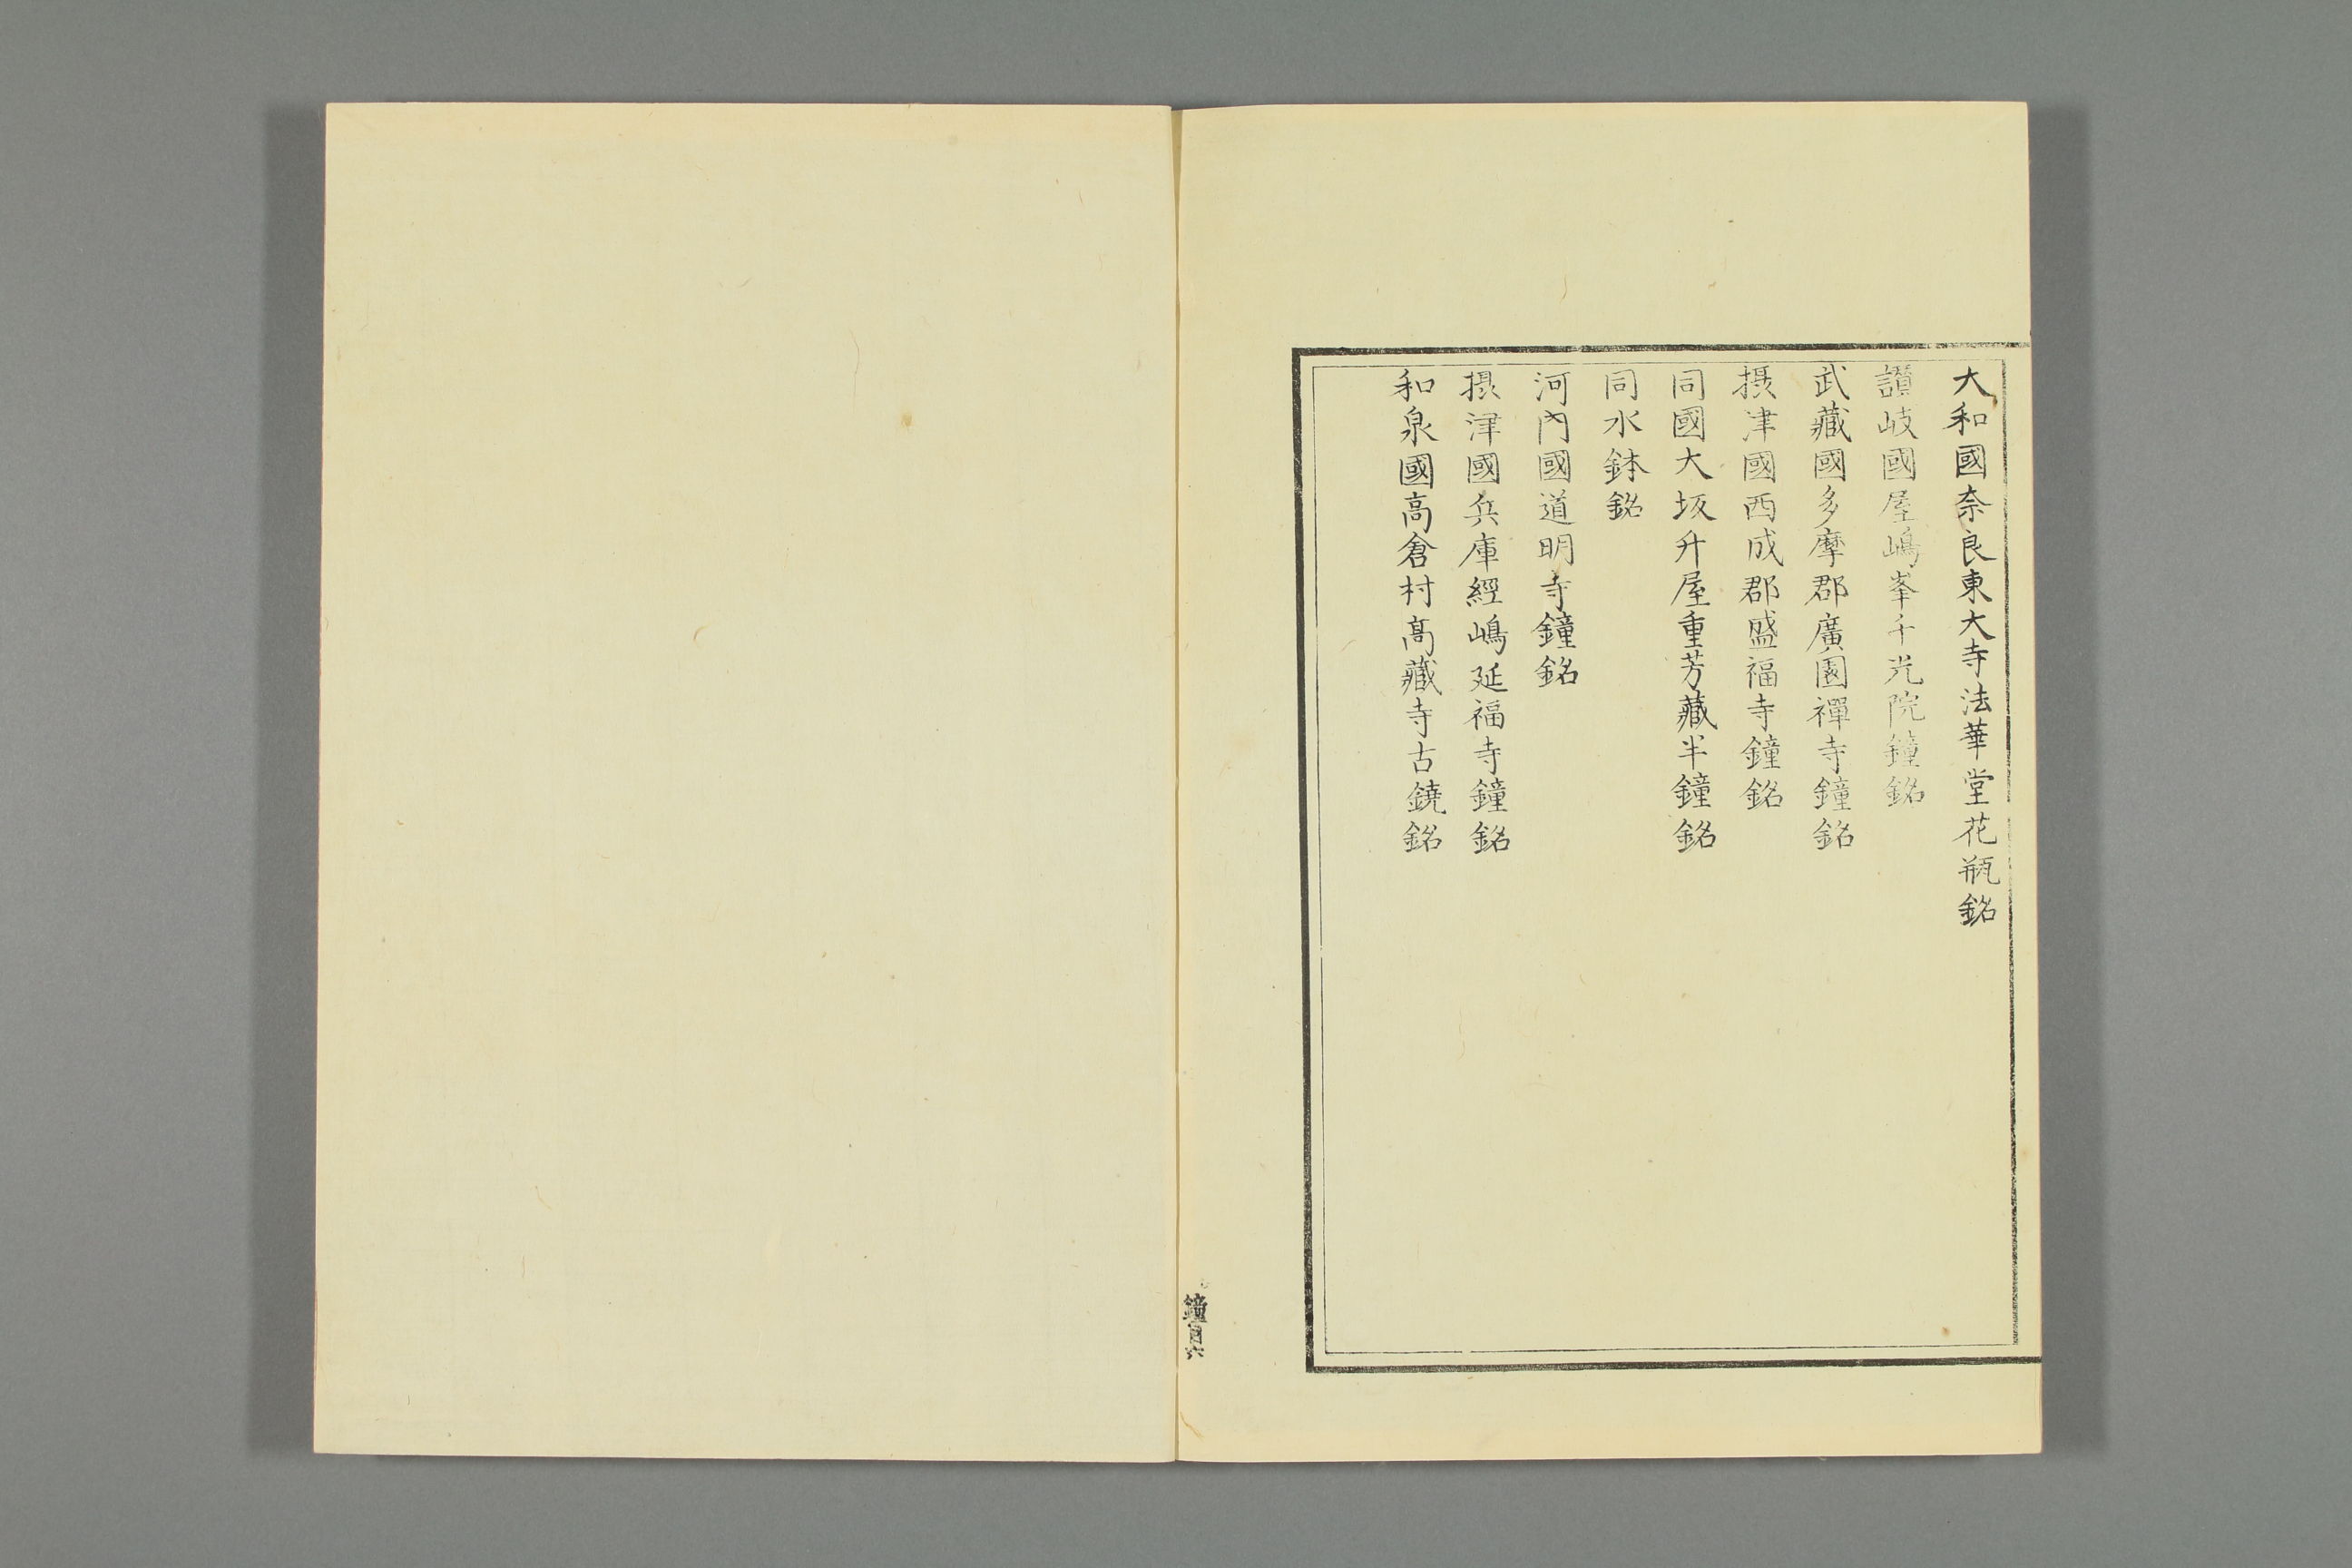 大和國奈良東大寺法華堂花瓶銘
讃岐國屋嶋峯千光院鐘銘
武藏國多摩郡廣園禪寺鐘銘
摂津國西成郡盛福寺鐘銘
同國大坂升屋重芳藏半鐘銘
同水鉢銘
河內國道明寺鐘銘
摂津國兵庫經嶋延福寺鐘銘
和泉國高倉村髙藏寺古鐃銘
鐘目六